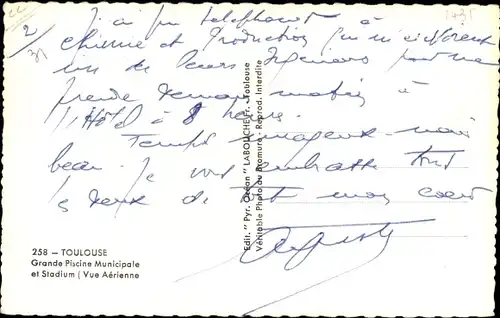 J'ai pu téléphoner à
chimie et Production qui m'envoient
un de leurs Ingénieurs pour me
prendre demain matin à
l'Hôtel à 8 heures.
Temps nuageux mais
beau. Je vous embrasse tous
les deux de tout mon coeur
258 — TOULOUSE
Grande Piscine Municipale
et Stadium ( Vue Aérienne
Edit. "Pyr. Océan" LABOUCHE Fr. - Toulouse
Véritable Photo au Bromure - Reprod. Interdite